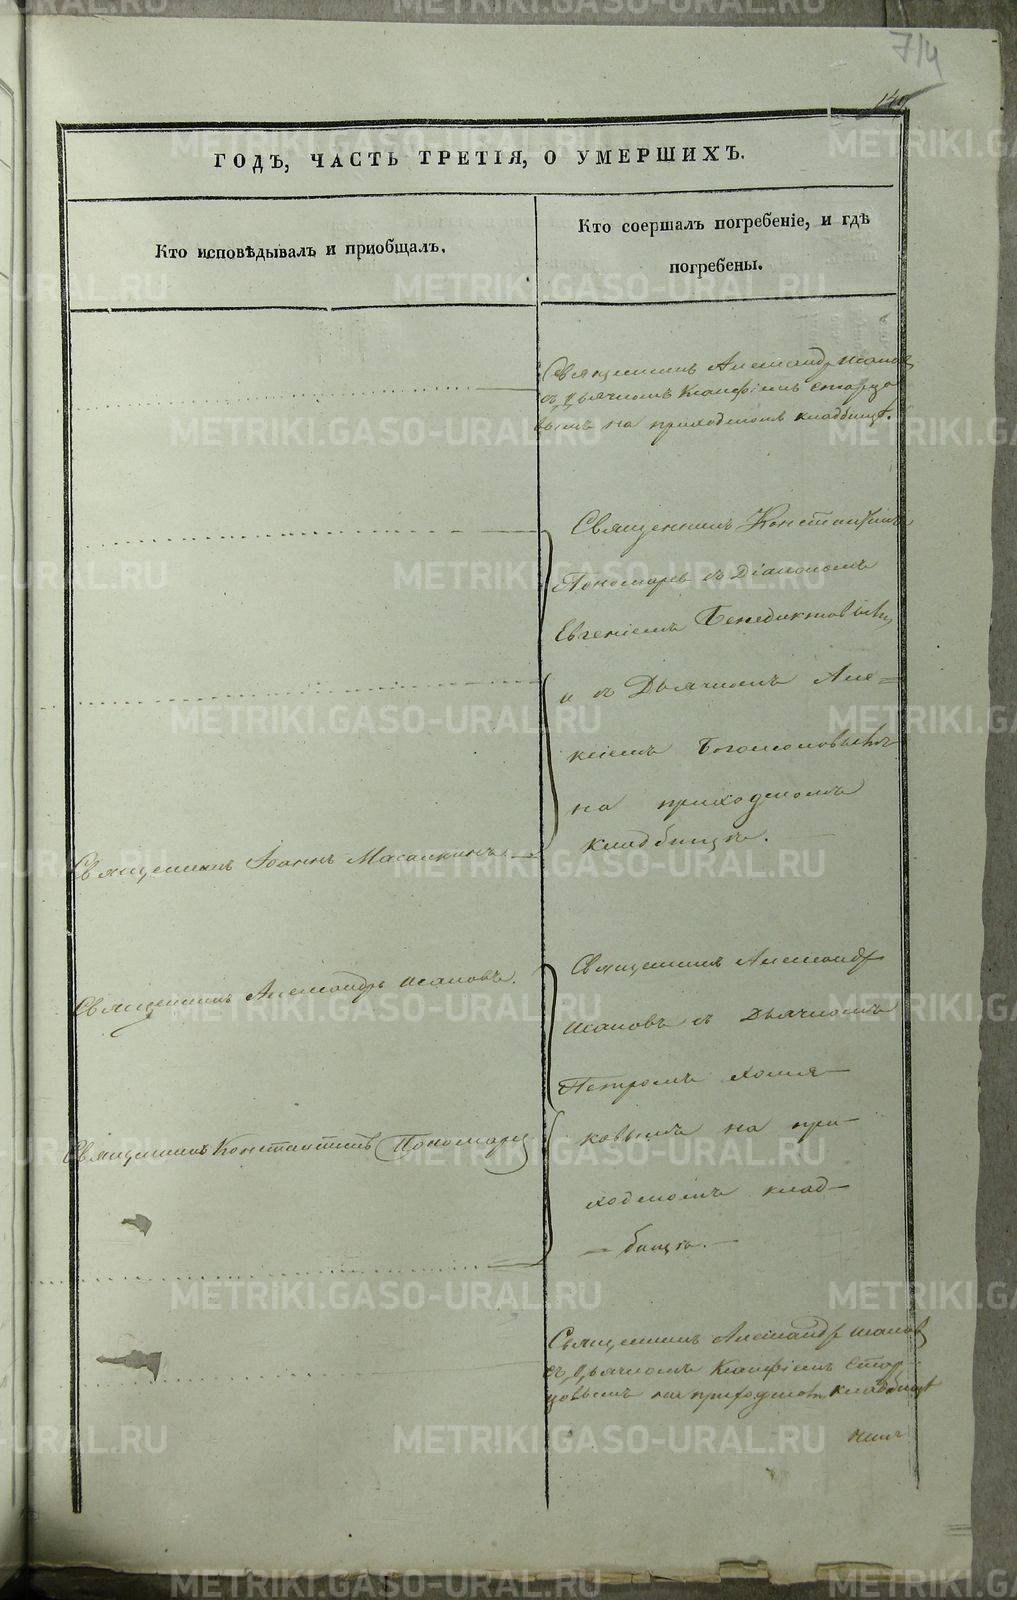 714
149
ГОДЪ, ЧАСТЬ ТРЕТІЯ, О УМЕРШИХЪ.
Кто исповѣдывалъ и пріобщалъ.
Кто соершалъ погребеніе, и гдѣ
погребены.
Священникъ Александръ
съ Дьячкомъ Старцо
вымъ на приходскомъ кладбищѣ.
Священникъ Константинъ
Пономаревъ съ Діакономъ
Евгеніемъ Бенедиктовымъ
и съ Дьячкомъ Але=
ксіемъ Богомоловымъ
на приходскомъ
кладбищѣ.
Священникъ Іоаннъ Масалкинъ
Священникъ Александръ
Священникъ Александръ
съ Дьячкомъ
Петромъ Холмя-
ковымъ на при-
ходскомъ клад-
бищѣ.
Священникъ Константинъ Пономаревъ
Священникъ Александръ
съ Дьячкомъ Стар
цовымъ на приходскомъ кладбищѣ
METRIKI.GASO-URAL.RU